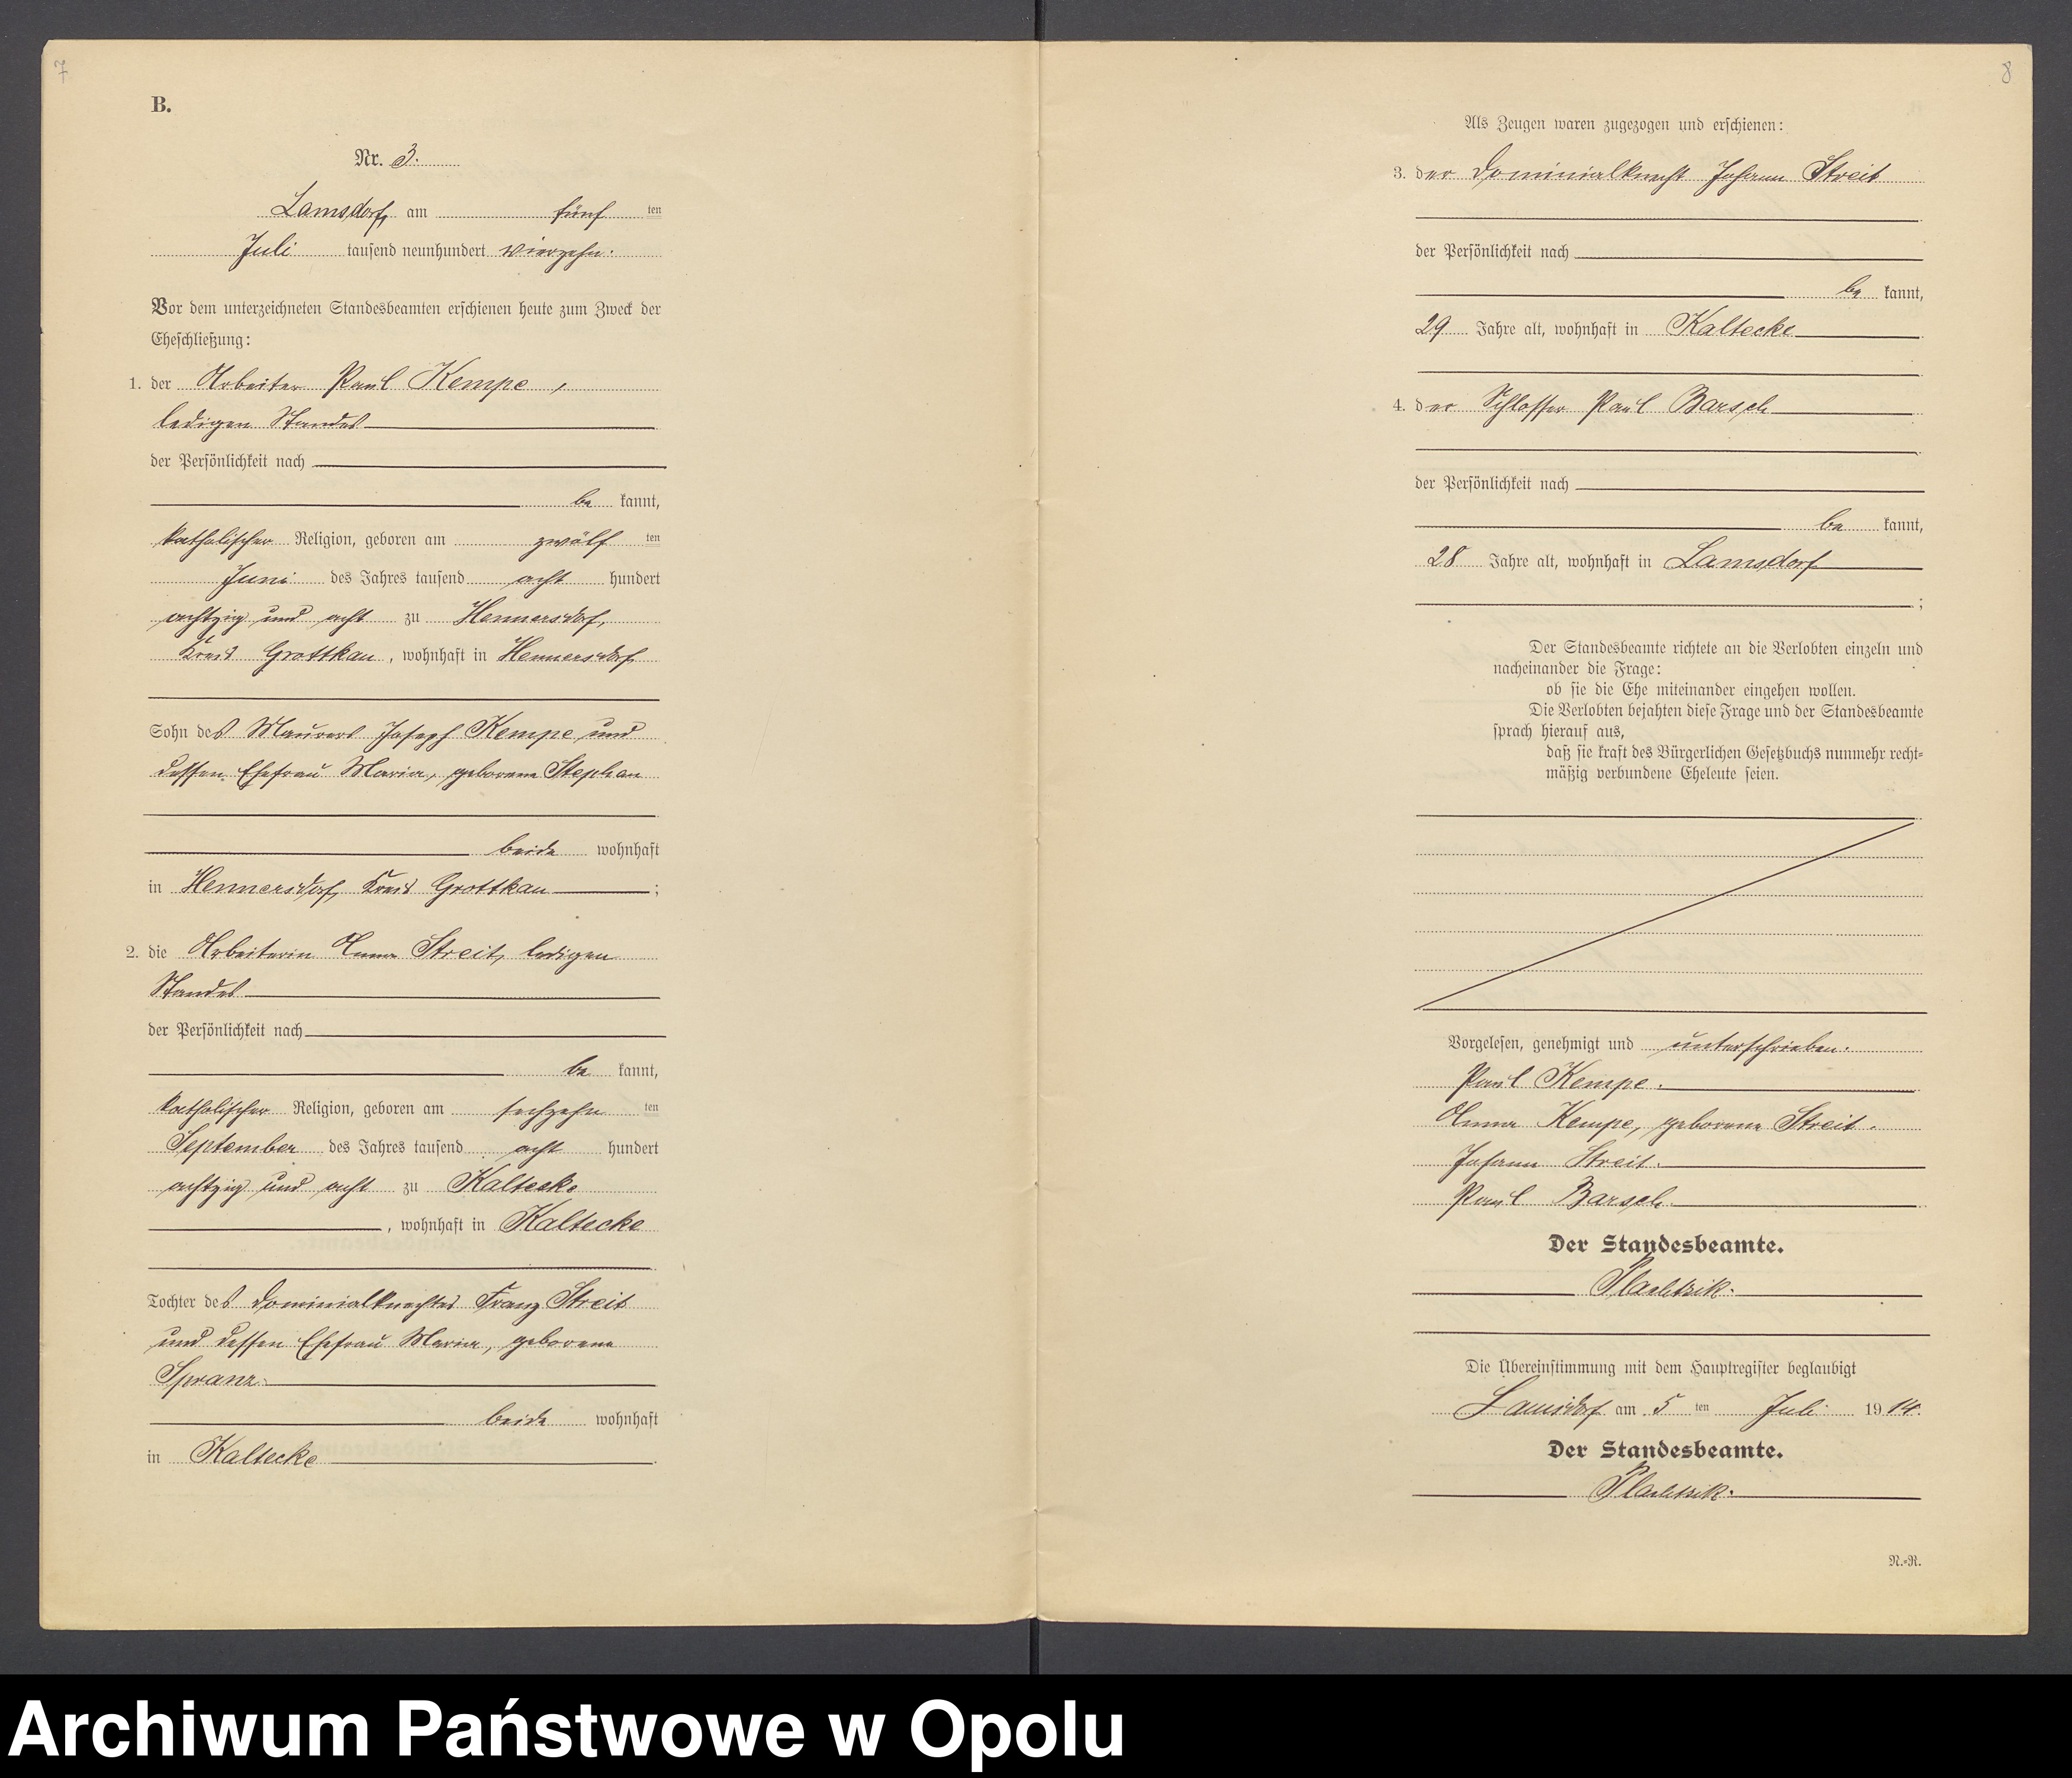 7
B.
Nr. 3.
Lamsdorf, am fünf ten
Juli tausend neunhundert vierzehn.
Vor dem unterzeichneten Standesbeamten erschienen heute zum Zweck der
Eheschließung:
1. der Arbeiter Paul Kempe,
ledigen Standes
der Persönlichkeit nach
be kannt,
katholischer Religion, geboren am zwölf ten
Juni des Jahres tausend acht hundert
achtzig und acht zu Hennersdorf,
Kreis Grottkau, wohnhaft in Hennersdorf
Sohn des Maurers Joseph Kempe und
dessen Ehefrau Maria, geborene Stephan
beide wohnhaft
in Hennersdorf, Kreis Grottkau ;
2. die Arbeiterin Anna Streit, ledigen
Standes
der Persönlichkeit nach
be kannt,
katholischer Religion, geboren am sechzehn ten
September des Jahres tausend acht hundert
achtzig und acht zu Kaltecke
, wohnhaft in Kaltecke
Tochter des Dominialknechtes Franz Streit
und dessen Ehefrau Maria, geborene
Spranz.
beide wohnhaft
in Kaltecke .
8
Als Zeugen waren zugezogen und erschienen:
3. der Dominialknecht Johann Streit
der Persönlichkeit nach
be kannt,
29 Jahre alt, wohnhaft in Kaltecke
4. der Schlosser Paul Barsch
der Persönlichkeit nach
be kannt,
28 Jahre alt, wohnhaft in Lamsdorf
;
Der Standesbeamte richtete an die Verlobten einzeln und
nacheinander die Frage:
ob sie die Ehe miteinander eingehen wollen.
Die Verlobten bejahten diese Frage und der Standesbeamte
sprach hierauf aus,
daß sie kraft des Bürgerlichen Gesetzbuchs nunmehr recht-
mäßig verbundene Eheleute seien.
Vorgelesen, genehmigt und unterschrieben.
Paul Kempe.
Anna Kempe, geborene Streit.
Johann Streit.
Paul Barsch.
Der Standesbeamte.
Die Übereinstimmung mit dem Hauptregister beglaubigt
Lamsdorf am 5 ten Juli 1914.
Der Standesbeamte.
N.-R.
Archiwum Państwowe w Opolu